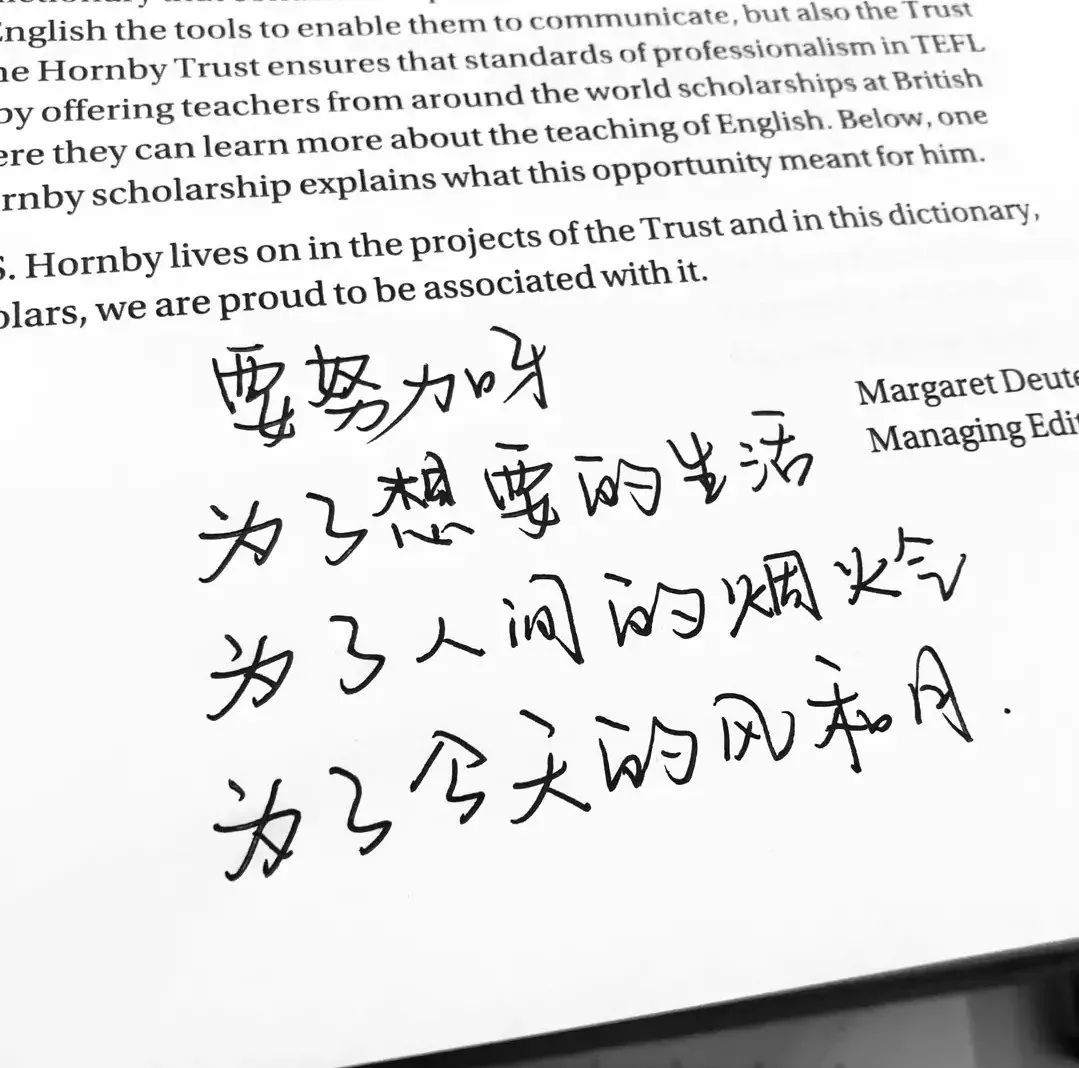 English the tools to enable them to communicate, but also the Trust
Hornby Trust ensures that standards of professionalism in TEFL
by offering teachers from around the world scholarships at British
they can learn more about the teaching of English. Below, one
scholarship explains what this opportunity meant for him.
S. Hornby lives on in the projects of the Trust and in this dictionary,
we are proud to be associated with it.
Margaret
Managing
要努力呀
为了想要的生活
为了人间的烟火气
为了今天的风和月.